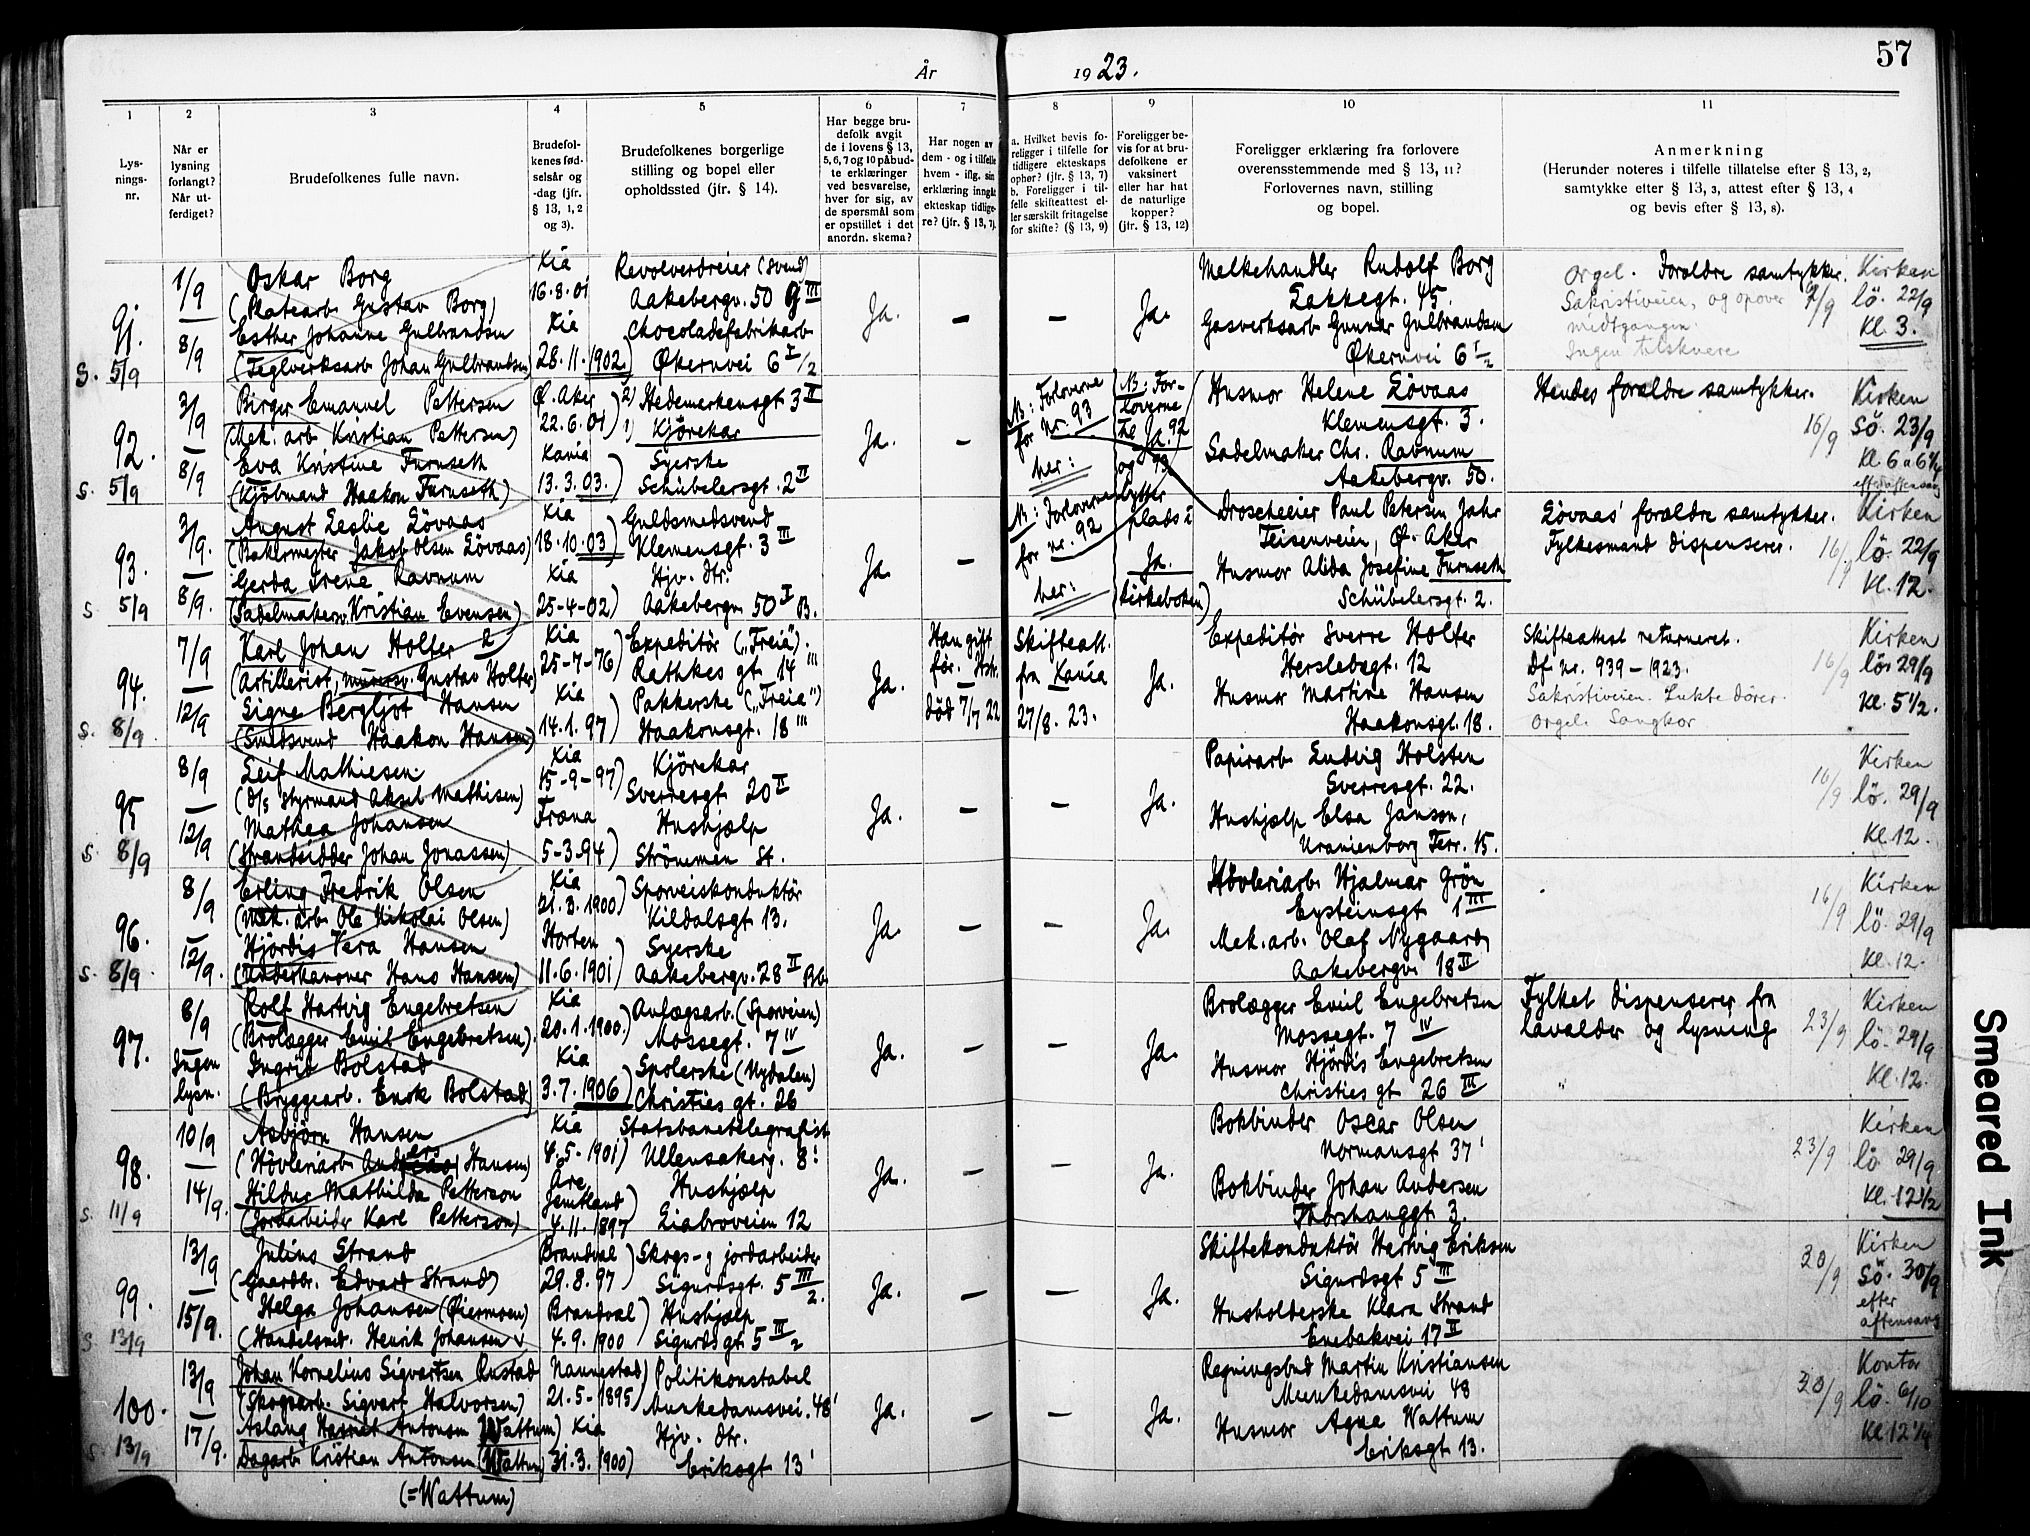 57
År 1923.
1
2
3
4
5
6
7
8
9
10
11
Lys-
nings-
nr.
Når er
lysning
forlangt?
Når ut-
ferdiget?
Brudefolkenes fulle navn.
Brudefol-
kenes fød-
selsår og
-dag (jfr.
§ 13, 1, 2
og 3).
Brudefolkenes borgerlige
stilling og bopel eller
opholdssted (jfr. § 14).
Har begge bru-
defolk avgit
de i lovens § 13,
5, 6, 7 og 10 påbud-
te erklæringer
ved besvarelse,
hver for sig, av
de spørsmål som
er opstillet i det
anordn. skema?
Har nogen av
dem - og i tilfelle
hvem - iflg. sin
erklæring inngåt
ekteskap tidlige-
re? (jfr. § 13, 7).
a. Hvilket bevis fo-
religger i tilfelle for
tidligere ekteskaps
ophør? (jfr. § 13, 7)
b. Foreligger i til-
felle skifteattest el-
ler særskilt fritagelse
for skifte? (§ 13, 9)
Foreligger be-
vis for at bru-
defolkene er
vaksinert
eller har hat
de naturlige
kopper?
(jfr. § 13, 12)
Foreligger erklæring fra forlovere
overensstemmende med § 13, 11?
Forlovernes navn, stilling
og bopel.
Anmerkning
(Herunder noteres i tilfelle tillatelse efter § 13, 2,
samtykke efter § 13, 3, attest efter § 13, 4
og bevis efter § 13, 8).
91.
S. 5/9
1/9
8/9
Oskar Borg
(Platearb. Gustav Borg)
Esther Johanne Gulbrandsen
(Teglverksarb. Johan Gulbrandsen)
Kia
16.8.01
Kia
28.11.1902)
Revolverdreier (svend)
Aakebergv. 50 g III
Chocoladefabrikarb
Økernvei 6 I/2
Ja.
—
—
Ja.
Melkehandler Rudolf Borg
Lakkegt. 45.
Gasverksarb Gunnar Gulbrandsen
Økernvei 6 I/2
Orgel. Foreldre samtykker.
Sakristiveien, og opover
midtgangen.
Ingen tilskuere
Kirken
lö. 22/9
Kl. 3.
92.
S. 5/9
3/9
8/9
Birger Emanuel Pettersen
(Mek. arb Kristian Pettersen)
Eva Kristine Furuseth
(Kjöbmand Haakon Furuseth)
Ø. Aker
22.6.01)
Kania
13.3.03.)
2) Hedemerkensgt 3 II
1) Kjörekar
Syerske
Schübelersgt. 2 II
Ja.
—
NB: Forloverne
for nr. 93
her:
NB: For-
loverne
til 92
Ja.
og 93
bytter
plads
Husmor Helene Lövaas
Klemensgt. 3.
Sadelmaker Chr. Ravnum
Aakebergv. 50.
Hendes foreldre samtykker.
16/9
Kirken
Sö. 23/9
Kl. 6 a 6 1/4
93.
S 5/9
3/9.
8/9.
August Leslie Lövaas
(Bakermester Jakob Olsen Lövaas)
Gerda Irene Ravnum
(Sadelmakersv. Kristian Evensen)
Kia
18.10.03)
Kia
25-4-02)
Guldsmedsvend
Klemensgt. 3 III
Hjv. dtr.
Aakebergv. 50 I B.
Ja.
—
NB: Forloverne
for nr. 92
her:
Ja.
(kirkeboken)
Droscheeier Paul Petersen Jahr
Teisenveien, Ø. Aker
Husmor Alida Josefine Furuseth
Schübelersgt. 2.
Lövaas' foreldre samtykker.
Fylkesmand dispenserer.
16/9
Kirken
lö. 22/9
Kl. 12.
94.
S. 8/9
7/9
12/9
Karl Johan Holter
(Artillerist, murersv. Gustav Holter)
Signe Bergljot Hansen
(Smedsvend Haakon Hansen)
Kia
25-7-76)
Kia
14.1.97)
Expeditör („Freia").
Rathkes gt. 14 III
Pakkerske („Freia")
Haakonsgt. 18 III
Ja.
Han gift
før. Hstr.
død 7/7 22
Skifteatt.
fra Kania
27/8. 23.
Ja.
Expeditör Sverre Holter
Herslebsgt. 12
Husmor Martine Hansen
Haakonsgt. 18.
Skifteattest returneret.
Df nr. 939 – 1923.
Sakristiveien. Lukte dører.
Orgel. Sangkor
16/9
Kirken
lör 29/9
Kl. 5 1/2.
95
S. 8/9
8/9
12/9
Leif Mathiesen
(D/s styrmand Aksel Mathisen)
Mathea Johansen
(Strandsidder Johan Jonassen)
Kia
15-9-97)
Fræna
5-3-94)
Kjörekar
Sverresgt 20 II
Hushjælp
Strömmen St.
Ja.
—
—
Ja.
Papirarb Ludvig Holsten
Sverresgt. 22.
Hushjælp Elsa Janson,
Uranienborg Terr. 15.
16/9
Kirken
lö. 29/9
Kl. 12.
96.
S. 8/9
8/9
12/9.
Erling Fredrik Olsen
(Mek. arb Ole Nikolai Olsen)
Hjördis Vera Hansen
(Underkanoner Hans Hansen)
Kia
21.3.1900)
Horten
11.6.1901)
Sporveiskonduktör
Kildalsgt 13.
Syerske
Aakebergv. 28 II Bb
Ja.
—
—
Ja.
Hövleriarb Hjalmar Grön
Eysteinsgt 1 III
Mek. arb. Olaf Nygaard
Aakebergv. 18 II
16/9
Kirken
lö. 29/9
Kl. 12.
97.
8/9
Ingen
lysn.
Rolf Hartvig Engebretsen
(Brolægger Emil Engebretsen).
Ingrid Bolstad
(Bryggearb. Enok Bolstad)
Kia
20.1.1900.)
Kia
3.7.1906)
Anlægsarb. (Sporveien)
Mossegt. 7 IV
Spolerske (Nydalen)
Christies gt. 26
Ja.
—
—
Ja.
Brolægger Emil Engebretsen
Mossegt. 7 IV
Husmor Hjördis Engebretsen
Christies gt 26 III
Fylket dispenserer fra
lavalder og lysning
23/9
Kirken
lö. 29/9
Kl. 12.
98.
S. 11/9
10/9
14/9.
Asbjörn Hansen
(Hövleriarb Anders Hansen)
Hildur Mathilda Petterson
(Jordarbeider Karl Petterson)
Kia
4.5-1901)
Åre
Jemtland)
4.11.1897
Statsbanetelegrafist
Ullensakerg. 8!
Hushjælp
Liabroveien 12
Ja.
—
—
Ja.
Bokbinder Oscar Olsen
Normansgt 37 I
Bokbinder Johan Andersen
Thorshauggt 3.
23/9
Kirken
lö 29/9
Kl. 12 1/2
99.
S 13/9
13/9
15/9.
Julius Strand
(Gaardbr. Edvard Strand)
Helga Johansen (Øiermoen)
(Handelsmd. Henrik Johansen
Brandval)
29.8.97)
Brandval)
4.9.1900
Skogs- og jordarbeider
Sigurdsgt. 5 III/2.
Hushjælp
Sigurdsgt 5 III/2
Ja.
—
—
Ja.
Skiftekonduktör Hartvig Eriksen
Sigurdsgt 5 III
Husholderske Klara Strand
Enebakvei 17 II
30/9
Kirken
Sö. 30/9
efter
aftensang
100.
S. 13/9
13/9
17/9.
Johan Kornelius Sigvartsen Rustad
(Skogsarb. Sigvart Halvorsen)
Aslaug Harriet Antonsen (Wattum)
Dagarb Kristian Antonsen (Wattum)
(=Wattum)
Nannestad)
21.5-1895)
Kia
31.3.1900)
Politikonstabel
Munkedamsvei. 48 I
Hjv. dtr.
Eriksgt 13 I
Ja.
—
—
Ja.
Regningsbud Martin Kristiansen
Munkedamsvei 48
Husmor Agna Wattum
Eriksgt 13.
30/9
Kontor
lö. 6/10
Kl 12 1/4
Smeared Ink